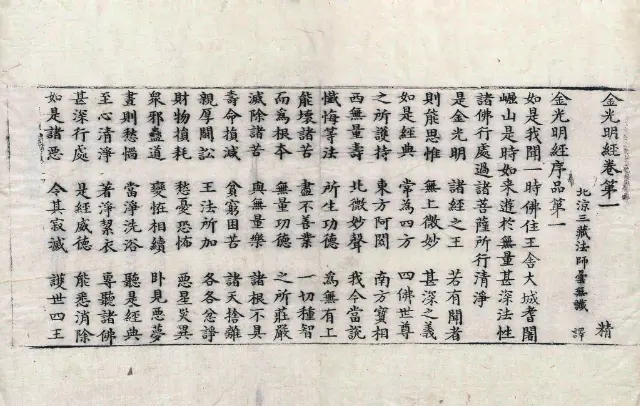 金光明經卷第一 精
北涼三藏法師曇無讖 譯
金光明經序品第一
如是我聞一時佛住王舍大城耆闍
崛山是時如來遊於無量甚深法性
諸佛行處過諸菩薩所行清淨
是金光明 諸經之王 若有聞者
則能思惟 無上微妙 甚深之義
如是經典 常為四方 四佛世尊
之所護持 東方阿閦 南方寶相
西無量壽 北微妙聲 我今當說
懺悔等法 所生功德 為無有上
能壞諸苦 盡不善業 一切種智
而為根本 無量功德 之所莊嚴
滅除諸苦 與無量樂 諸根不具
壽命損減 貧窮困苦 諸天捨離
親厚鬪訟 王法所加 各各忿諍
財物損耗 愁憂恐怖 惡星災異
眾邪蠱道 變怪相續 臥見惡夢
晝則愁惱 當淨洗浴 聽是經典
至心清淨 著淨潔衣 專聽諸佛
甚深行處 是經威德 能悉消除
如是諸惡 令其寂滅 護世四王